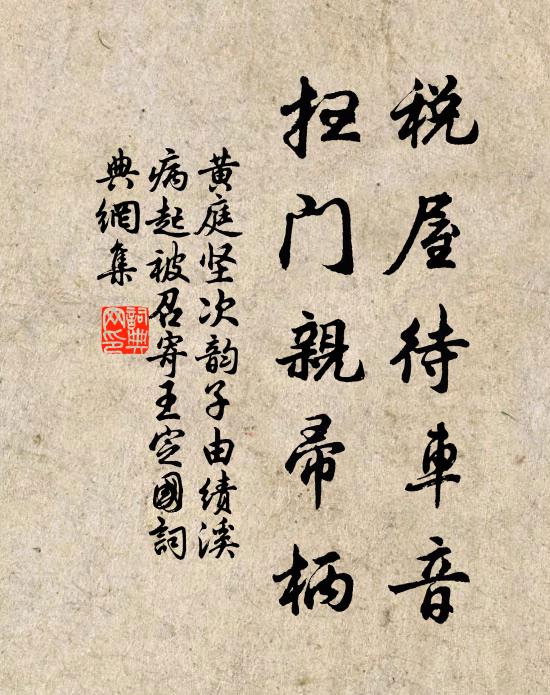 税屋待車音
扫門親帚柄
黄庭坚次韵子由績溪
病起被召寄王定國詞
典網集
詞典網印